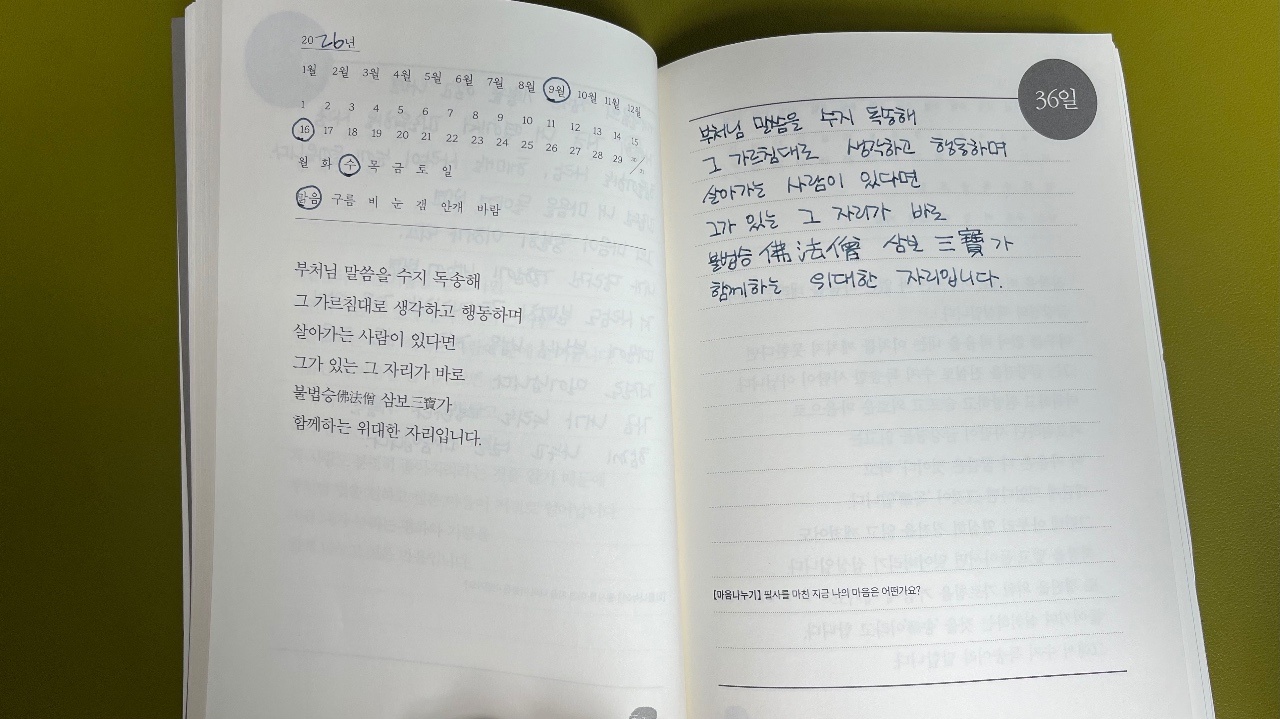 2026년
1월 2월 3월 4월 5월 6월 7월 8월 9월 10월 11월 12월
1 2 3 4 5 6 7 8 9 10 11 12 13 14 15
16 17 18 19 20 21 22 23 24 25 26 27 28 29 30/31
월 화 수 목 금 토 일
맑음 구름 비 눈 갬 안개 바람
부처님 말씀을 수지 독송해
그 가르침대로 생각하고 행동하며
살아가는 사람이 있다면
그가 있는 그 자리가 바로
불법승佛法僧 삼보三寶가
함께하는 위대한 자리입니다.
36일
부처님 말씀을 수지 독송해
그 가르침대로 생각하고 행동하며
살아가는 사람이 있다면
그가 있는 그 자리가 바로
불법승 佛法僧 삼보 三寶가
함께하는 위대한 자리입니다.
[마음나누기] 필사를 마친 지금 나의 마음은 어떤가요?